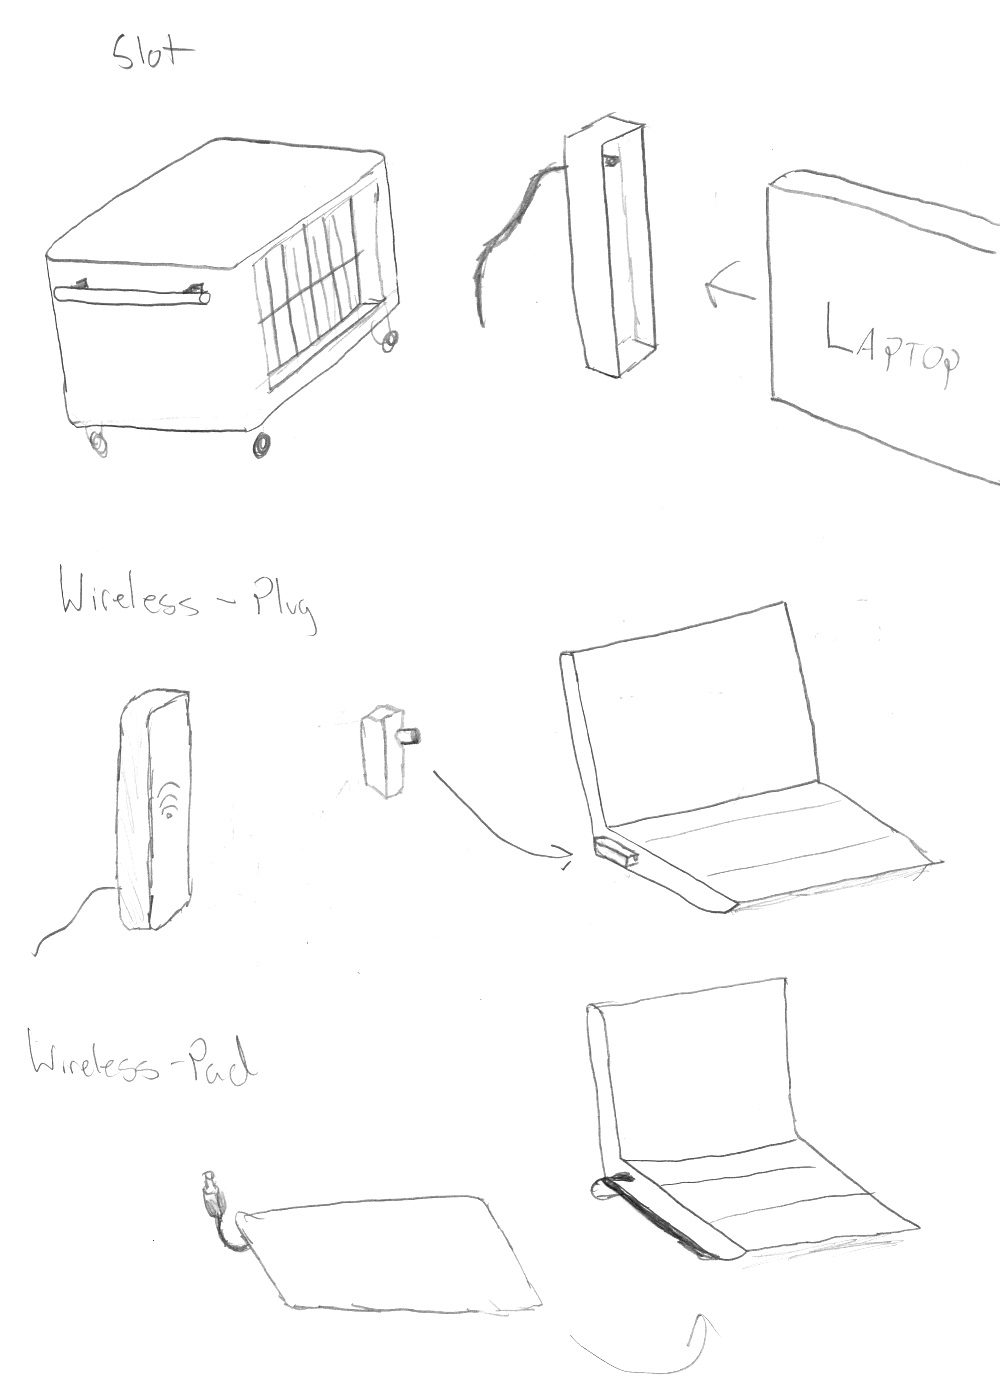 Slot
LAPTOP
Wireless - Plug
Wireless - Pad